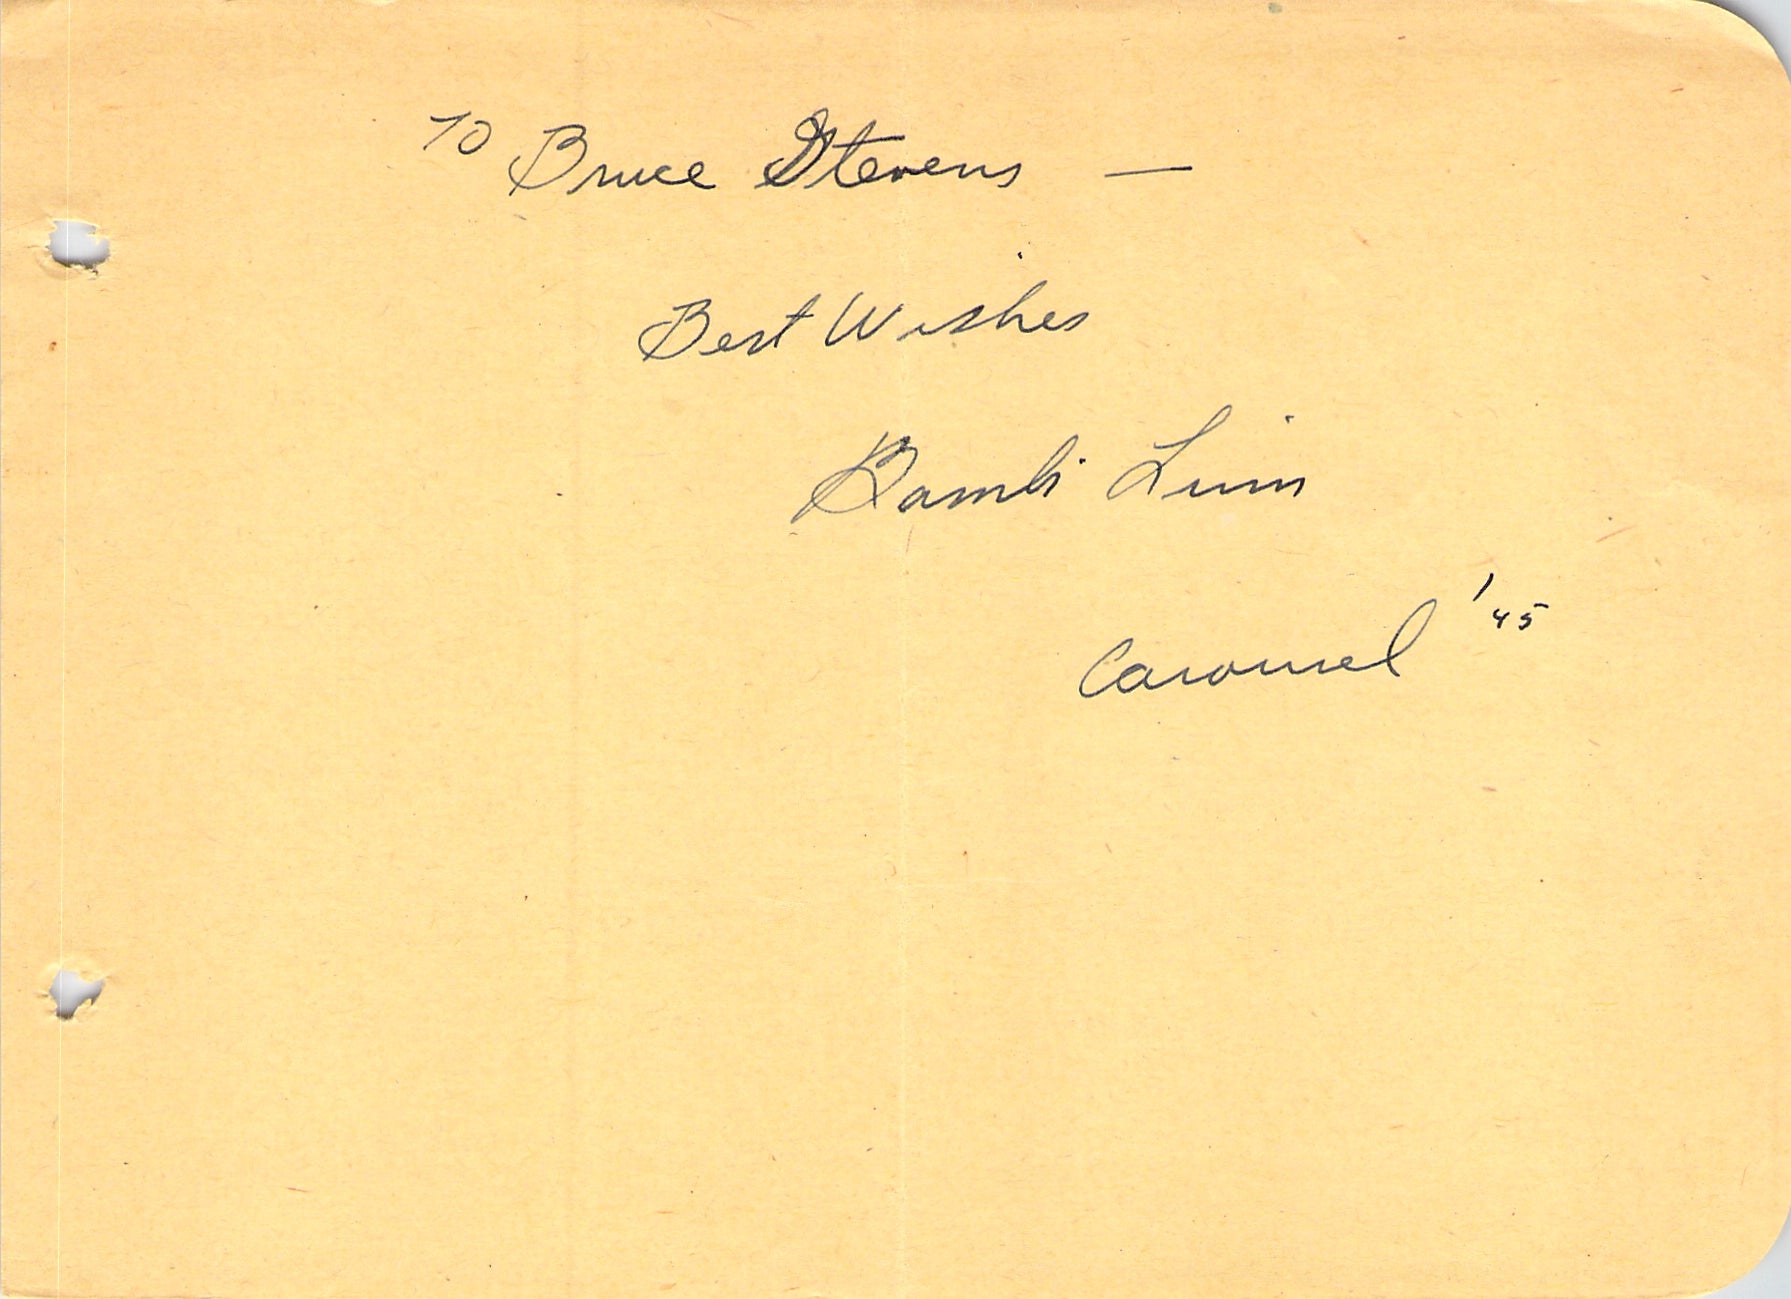 To Bruce Stevens —
Best Wishes
Bambi Linn
Carousel '45